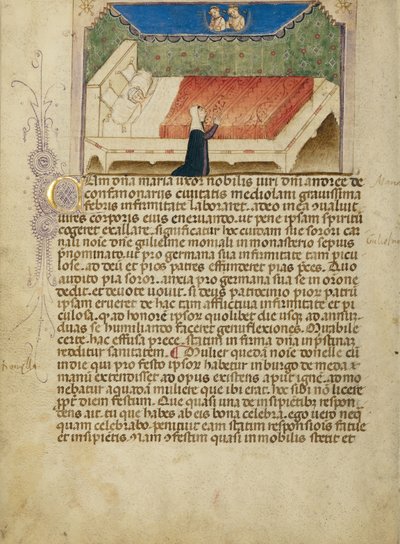 Cum dña maria uxor nobilis viri dñi andree de
confanonariis civitatis mediolani gravissima
febris infirmitate laboraret. adeo in ea qualuit
vires corporis eius enervando. ut pene ipsam spiritū
cogeret exallare. significatur hoc cuidam sue sorori car
nali noïe dñe guilielme moniali in monasterio sepius
p̄nominato. ut pro germana sua infirmitate tam picu
lose. ad deū et pios patres effunderet pias p̄ces. Quo
audito pia soror. anxia pro germana sua se in orōne
dedit. et devote vovit. si deus patrem suorum pior patrū
ipsam erueret de hac tam afflictiva infirmitate et pi
culosa. q. ad honorē ipsorum quolibet die usq. ad annū.
duas se humiliando faceret genuflexiones. Mirabile
certe. hac effusa prece. statim infirma dña in pstinā
redditur sanitatem. ¶ Mulier quedā noïe donelle cū
in die qui pro festo ipsor habetur in burgo de meda. a
manū extendisset ad opus existens apud ignē. ad mo
nebatur a quadā muliere que ibi erat. hec sibi nō licere
pp̄t diem festum. Que quasi una de insipiētibus respon
dens ait. tu que habes ab eis bona celebra. ego vero neq
quam celebrabo. penituit eam statim responsiōis fatue
et insipiētis. Nam infestum quasi inmobilis stetit et
Maria
Guilielma
Donella